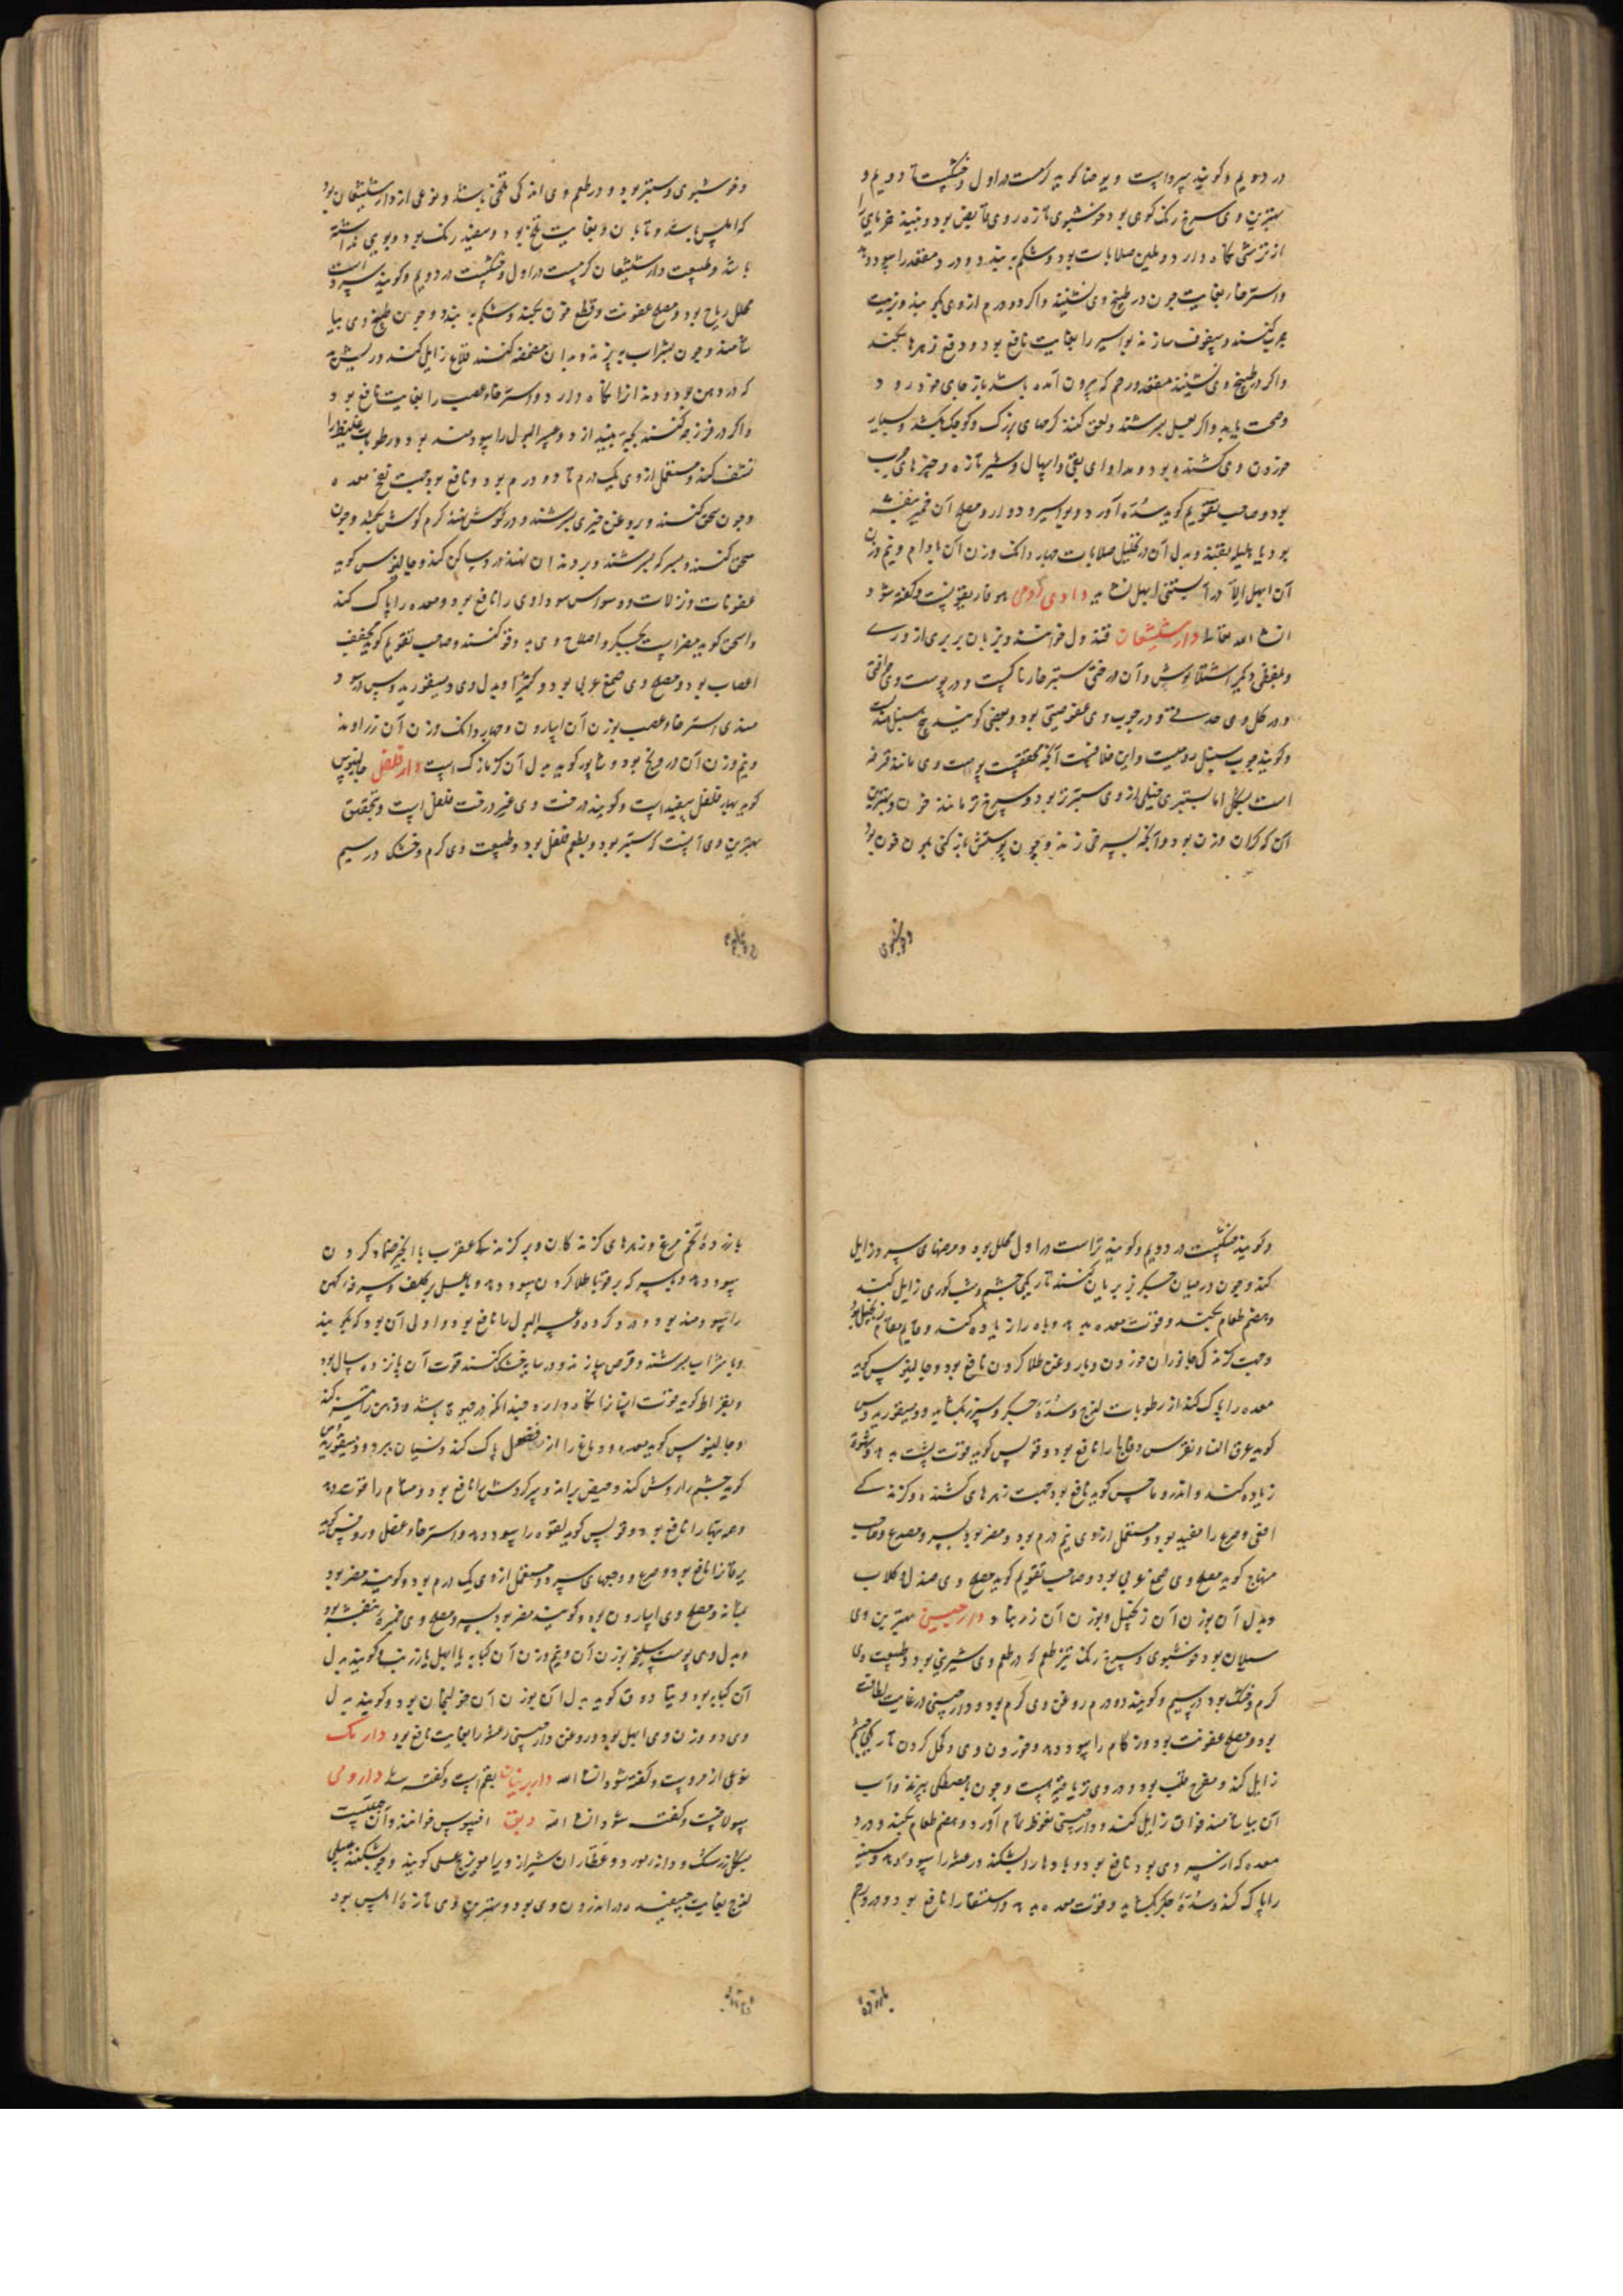 در دویم وکویند سردست ویوحنا کوید کرمست در اول وخشکست تا دویم و
بهترین وی سرخ رنک کوهی بود خوشبوی تازه روی قابض بود ونبیذ خرمای را
از ترشی نکاه دارد وملین صلابات بود وشکم به بندد ودرد مقعد را سود دهد
واسترخا بغایت چون در طبیخ وی نشینند واکر دو درم از وی بکوبند وبزیت
چرب کنند وسفوف سازند بواسیر را بغایت نافع بود ودفع زهرها بکند
واکر در طبیخ وی نشینند مقعد ورحم که بیرون آمده باشد باز جای خود رود
وصحت یابد واکر بعسل بسرشند ولعق کنند کرمهای بزرک وکوچک بکشد وبسیار
خوردن وی کشنده بود ومداوای بقی واسهال وشیر تازه وچیزهای چرب
بود وصاحب تقویم کوید سده آورد وبواسیر ودوار ومصلح آن خمیر بنفشه
بود یا هلیله بقند وبدل آن در تحلیل صلابات چهار دانک وزن آن بادام ونیم وزن
آن ابهل الا در آبستنی ابهل نشاید دادی رومی هوفاریقونست وکفته شود
انشا الله تعالی دارشیشعان قندول خوانند وبزبان بربری ازوری
وبلفظی دیکر اشقالوس وآن درختی ستبر خارناکست ودر پوست وی حرافتی
ودر کل وی حدتی ودر چوب وی عفوصتی بود وبعضی کویند بیخ سنبل هندیست
وکویند چوب سنبل رومیست واین خلافست آنچه محققست پوست وی مانند قرفه
است بشکل اما بستبری خیلی از وی ستبرتر بود وسرخ تر مانند خون وبهترین
آن که کران وزن بود وآنکه بسرخی زند وچون پوستش باز کنی بلون خون بود
وخوشبوی
وخوشبوی وستبر بود ودر طعم وی اندکی تلخی باشد ونوعی از دارشیشعان بود
که املس باشد وتابان وبغایت تلخ بود وسفید رنک بود وبوی نداشته
باشد وطبیعت دارشیشعان کرمست در اول وخشکست در دویم وکویند سردست
محلل ریاح بود ومصلح عفونت وقطع خون بکند وشکم به بندد وچون طبیخ وی بیا
شامند وچون بشراب بپزند وبدان مضمضه کنند قلاع زایل کند وریشی
که در دهن بود ودندانرا نکاه دارد واسترخاء عصب را بغایت نافع بود
واکر در فرزجه کنند بچه بیندازد وعسر البول را سودمند بود ورطوبات غلیظ را
نشف کند ومستعمل از وی یک درم تا دو درم بود ونافع بود جهت نفخ معده
وچون سحق کنند وبروغن خیری بسرشند ودر کوش نهند کرم کوش بکشد وچون
سحق کنند وبسرکه بسرشند وبر دندان نهند درد ساکن کند وجالینوس کوید
عفونات ونزلات ووسواس سوداوی را نافع بود ومعده را پاک کند
واسحق کوید مضر است بجکر واصلاح وی به دوقو کنند وصاحب تقویم کوید مجفف
اعصاب بود ومصلح وی صمغ عربی بود وکتیرا وبدل وی دیسقوریدوس در سود
مندی استرخاء عصب بوزن آن اسارون وچهار دانک وزن آن زراوند
ونیم وزن آن درونج بود وشاپور کوید بدل آن کزمازک است دارفلفل جالینوس
کوید بهار فلفل سفید است وکویند درخت وی غیر درخت فلفل است وبتحقیق
بهترین وی آنست که ستبر بود وبطعم فلفل بود وطبیعت وی کرم وخشک در سیم
وکویند خشکست در دویم وکویند تر است در اول محلل بود ومرضهای سرد زایل
کند وچون در میان جکر بز بریان کنند تاریکی چشم وشب کوری زایل کند
وهضم طعام بکند وقوت معده بدهد وباه را زیاده کند وقایم مقام زنجبیل بود
وجهت کزندکی جانوران خوردن وبا روغن طلا کردن نافع بود وجالینوس کوید
معده را پاک کند از رطوبات لزج وسده جکر وسپرز بکشاید ودیسقوریدوس
کوید عرق النسا ونقرس وفالج را نافع بود وفولس کوید قوت پشت بدهد وشهوة
زیاده کند واندروماخس کوید نافع بود جهت زهرهای کشنده وکزندکی
افعی وصرع را مفید بود ومستعمل از وی نیم درم بود ومضر بود بسر ومصدع وصاحب
منهاج کوید مصلح وی صمغ عربی بود وصاحب تقویم کوید مصلح وی صندل وکلاب
وبدل آن بوزن آن زنجبیل وبوزن آن زرنباد دارچینی بهترین وی
سیلان بود خوشبوی وسرخ رنک تیز طعم که در طعم وی شیرینی بود وطبیعت وی
کرم وخشک بود در سیم وکویند دو درم روغن وی کرم بود ودارچینی در غایت لطافت
بود ومصلح عفونت بود وزکام را سود دهد وخوردن وی وکحل کردن تاریکی چشم
زایل کند ومفرح قلب بود ودر وی تریاقیتی هست وچون با مصطکی بپزند وآب
آن بیاشامند فواق زایل کند ودارچینی نعوظ تمام آورد وهضم طعام بکند ودرد
معده که از سردی بود نافع بود وبادها را بشکند ورعشه را سود دهد وسینه
را پاک کند وسده جکر بکشاید وقوت معده بدهد واستسقا را نافع بود ودرد رحم
بازرده
بازرده تخم مرغ وزهرهای کزندکان وبر کزندکی عقرب با انجیر ضماد کردن
سود دهد وبسرکه بر قوبا طلا کردن سود دهد وبا عسل بر کلف وسرفه کهن
را سودمند بود ودرد کرده وعسر البول را نافع بود واولی آن بود که بکوبند
وبا شراب بسرشند وقرص سازند ودر سایه خشک کنند قوت آن پانزده سال بود
وبقراط کوید قوت انسانرا نکاه دارد چندانکه در حیوة باشد وذهن را تیز کند
وجالینوس کوید معده ودماغ را از فضول پاک کند ونسیان ببرد ودیسقوریدوس
کوید چشم را روشن کند وحیض براند وسرکردش را نافع بود ومسام را قوت دهد
وهمه تبها را نافع بود وفولس کوید لقوه را سود دهد واسترخاء عضل وروفس کوید
یرقانرا نافع بود وصرع ووجعهای سرد ومستعمل از وی یک درم بود وکویند مضر بود
بمثانه ومصلح وی اسارون بود وکویند مضر بود بسر ومصلح وی خمیره بنفشه بود
وبدل وی پوست سلیخه بوزن آن ونیم وزن آن کبابه یا ابهل یا زرنب وکویند بدل
آن کبابه بود ودیقادوق کوید بدل آن بوزن آن خولنجان بود وکویند بدل
وی دو وزن وی ابهل بود وروغن دارچینی رعشه را بغایت نافع بود دارمک
نوعی از مروست وکفته شود انشا الله داربرنیان بقم است وکفته شد دارومی
سولافست وکفته شود انشا الله دبق افسوس خوانند وآن حبیست
بشکل زرشک ودانه مورد وعطاران شیراز ویرا مویزج عسلی کویند وچون بشکنند عسلی
لزج بغایت چسپنده در اندرون وی بود وبهترین وی تازه املس بود